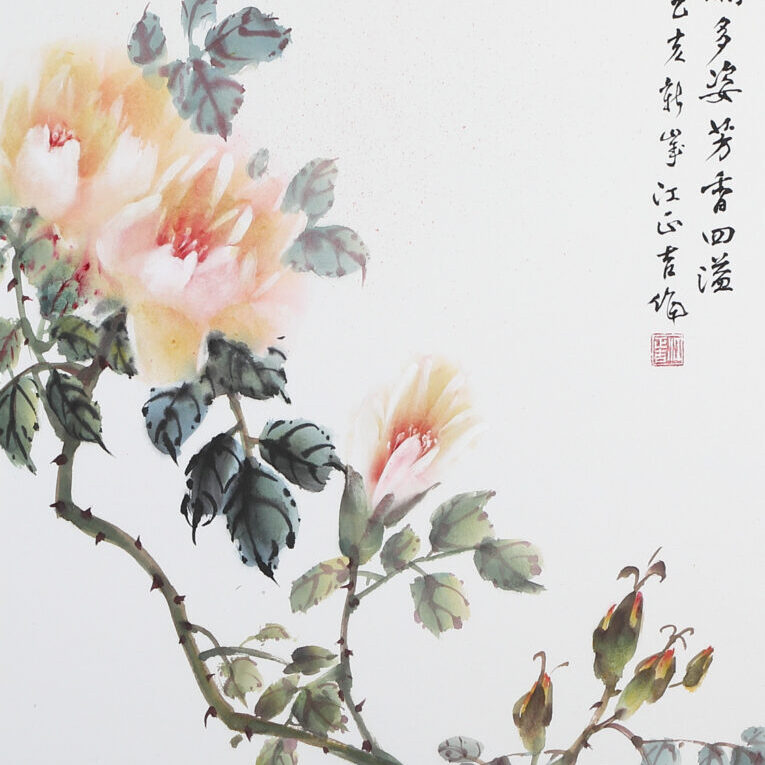 多姿芳香四溢
亥新峯江正吉作